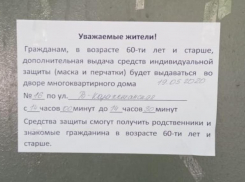 Уважаемые жители!
Гражданам, в возрасте 60-ти лет и старше,
дополнительная выдача средств индивидуальной
защиты (маска и перчатки) будет выдаваться во
дворе многоквартирного дома 19.05.2020
№ по ул.
с 14 часов 00 минут до 14 часов 30 минут
Средства защиты смогут получить родственники и
знакомые гражданина в возрасте 60-ти лет и
старше.